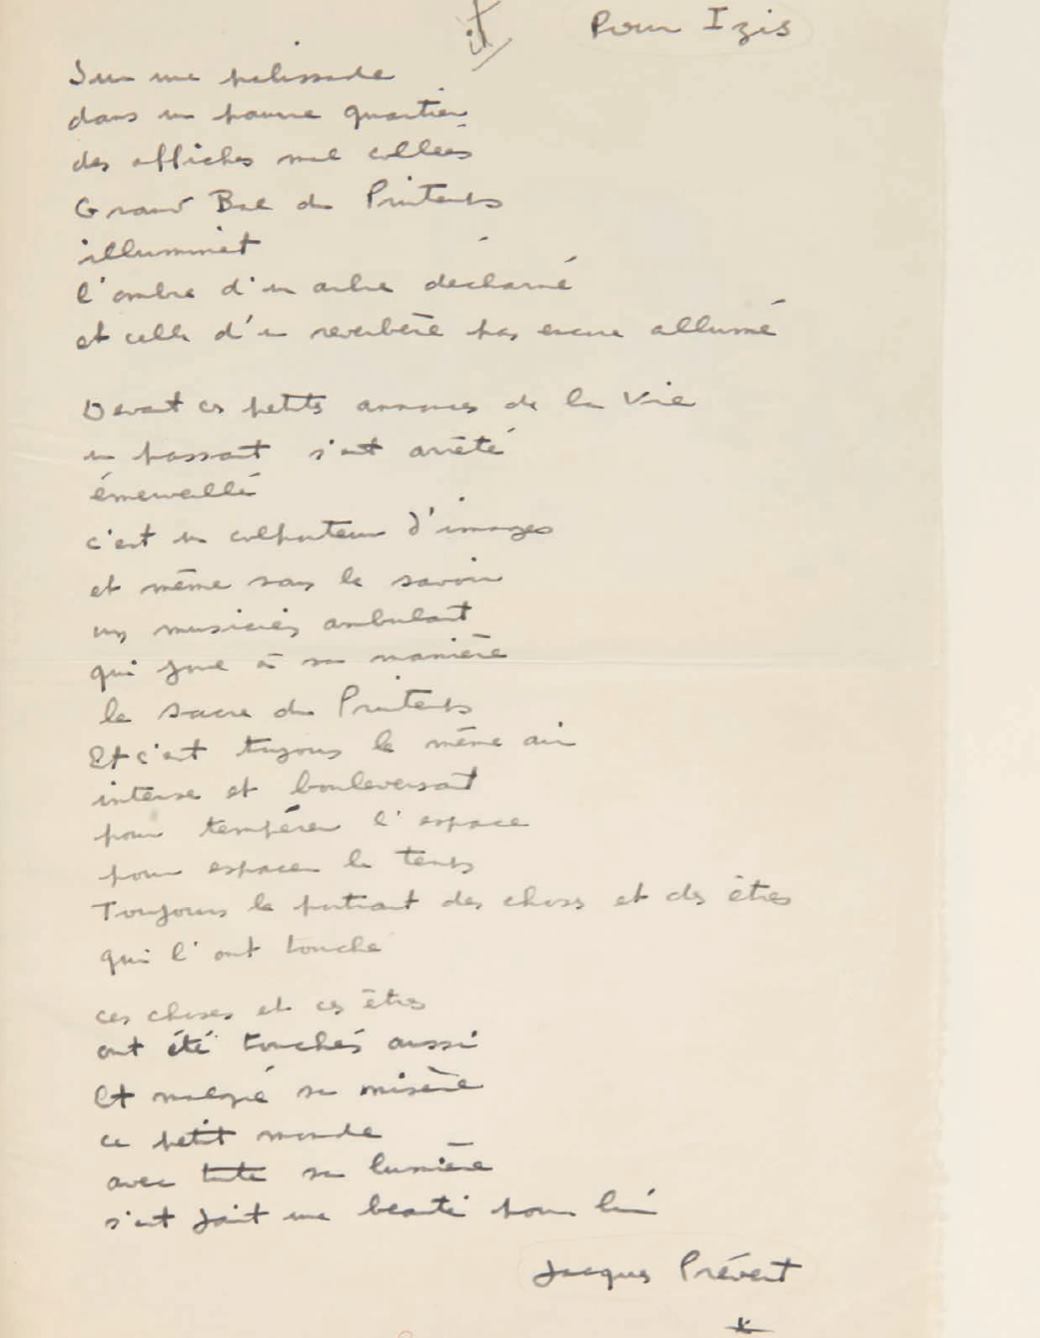 it
Pour Izis
Sur une palissade
dans un pauvre quartier
des affiches mal collées
Grand Bal du Printemps
illuminent
l'ombre d'un arbre décharné
et celle d'un réverbère pas encore allumé
Devant ces petites annonces de la Vie
un passant s'est arrêté
émerveillé
c'est un colporteur d'images
et même sans le savoir
un musicien ambulant
qui joue à sa manière
le sacre du Printemps
Et c'est toujours le même air
intense et bouleversant
pour tempérer l'espace
pour espacer le temps
Toujours le portrait des choses et des êtres
qui l'ont touché
ces choses et ces êtres
ont été touchés aussi
Et malgré sa misère
ce petit monde
avec toute sa lumière
s'est fait une beauté pour lui
Jacques Prévert